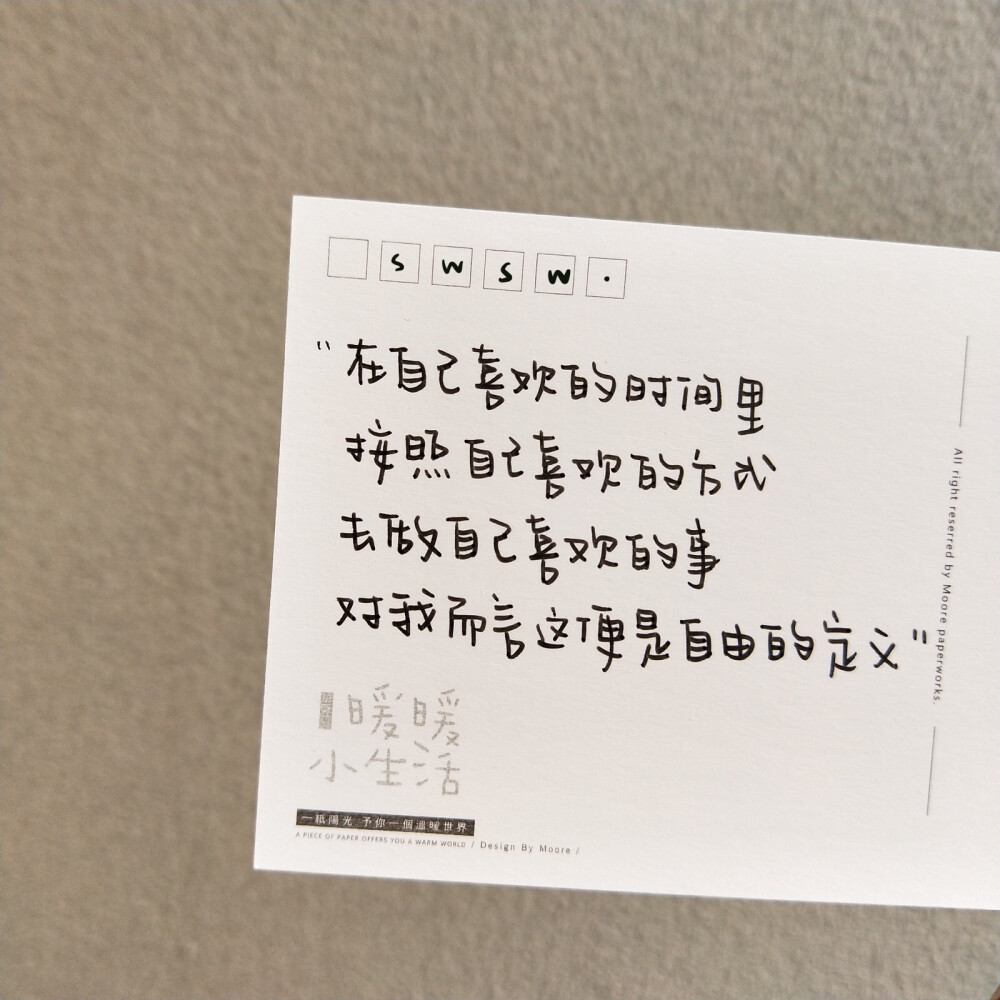 s w s w .
"在自己喜欢的时间里
按照自己喜欢的方式
去做自己喜欢的事
对我而言这便是自由的定义"
暖暖
小生活
一紙陽光 予你一個溫暖世界
A PIECE OF PAPER OFFERS YOU A WARM WORLD / Design By Moore /
All right reserred by Moore paperworks.